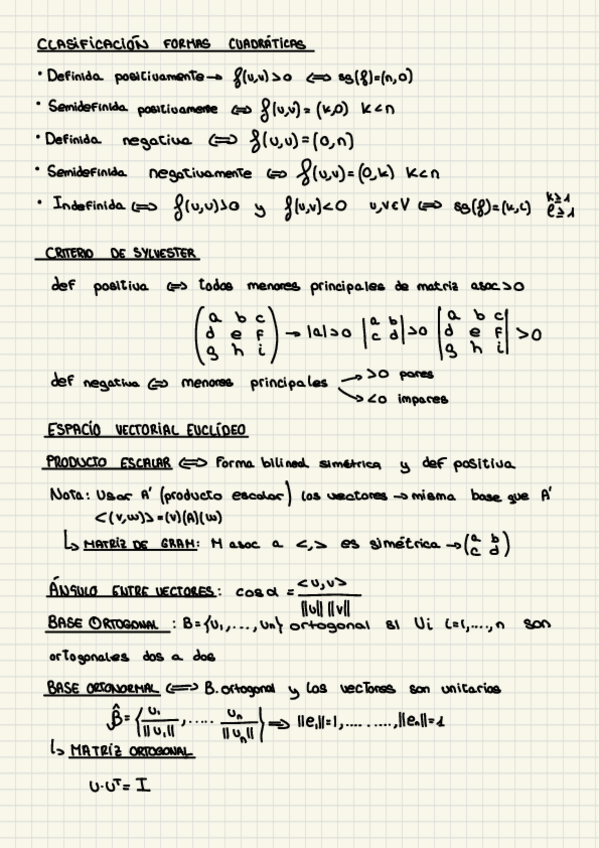 CLASIFICACIÓN FORMAS CUADRÁTICAS
• Definida positivamente → f(u,u)>0 ⟺ sg(f)=(n,0)
• Semidefinida positivamente ⟺ f(u,u)=(k,0) k<n
• Definida negativa ⟺ f(u,u)=(0,n)
• Semidefinida negativamente ⟺ f(u,u)=(0,k) k<n
• Indefinida ⟺ f(u,u)>0 y f(u,v)<0 u,v∈V ⟺ sg(f)=(k,l) k≥1 l≥1
CRITERIO DE SYLVESTER
def positiva ⟺ todos menores principales de matriz asoc>0
(a b c / d e f / g h i) → |a|>0 |a b / c d|>0 |a b c / d e f / g h i|>0
def negativa ⟺ menores principales → >0 pares
→ <0 impares
ESPACIO VECTORIAL EUCLÍDEO
PRODUCTO ESCALAR ⟺ Forma bilineal simétrica y def positiva
Nota: Usar A' (producto escalar) los vectores → misma base que A'
<(v,w)>=(v)(A)(w)
↳ MATRIZ DE GRAM: M asoc a <,> es simétrica → (a b / c d)
ÁNGULO ENTRE VECTORES: cos α = <u,v> / ||u|| ||v||
BASE ORTOGONAL : B={u₁,...,un} ortogonal si Ui i=1,....,n son
ortogonales dos a dos
BASE ORTONORMAL ⟺ B. ortogonal y los vectores son unitarios
B̂={u₁/||u₁||,..... un/||un||} ⟹ ||e₁||=1,.... ....,||en||=1
↳ MATRIZ ORTOGONAL
U·Uᵀ= I